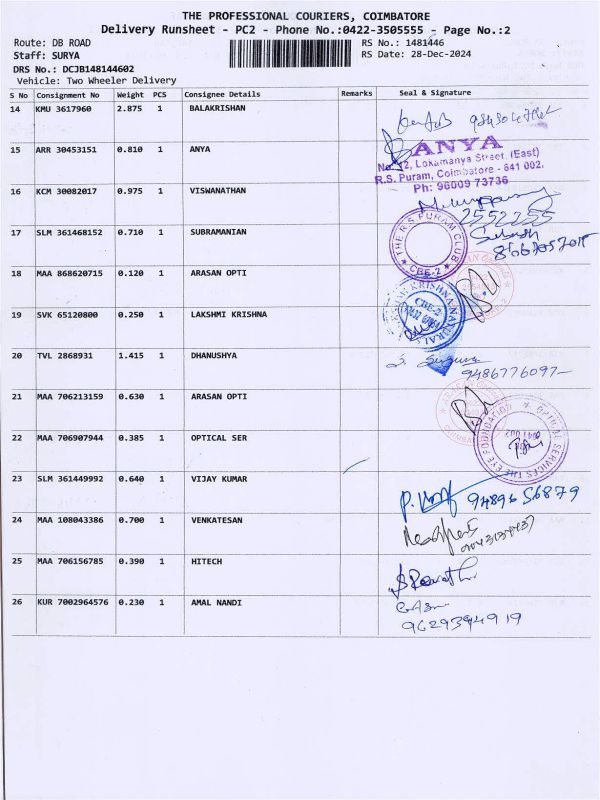 THE PROFESSIONAL COURIERS, COIMBATORE
Delivery Runsheet - PC2 - Phone No.:0422-3505555 - Page No.:2
Route: DB ROAD RS No.: 1481446
Staff: SURYA RS Date: 28-Dec-2024
DRS No.: DCJB148144602
Vehicle: Two Wheeler Delivery
S No Consignment No Weight PCS Consignee Details Remarks Seal & Signature
14 KMU 3617960 2.875 1 BALAKRISHAN
15 ARR 30453151 0.810 1 ANYA
ANYA
No. 12, Lokamanya Street, (East)
R.S. Puram, Coimbatore - 641 002.
Ph: 96009 73736
16 KCM 30082017 0.975 1 VISWANATHAN
2552255
17 SLM 361468152 0.710 1 SUBRAMANIAN
THE R.S. PURAM CLUB
CBE-2
18 MAA 868620715 0.120 1 ARASAN OPTI
19 SVK 65120800 0.250 1 LAKSHMI KRISHNA
KRISHNA NATURAL
CBE-2
20 TVL 2868931 1.415 1 DHANUSHYA
9486776097
21 MAA 706213159 0.630 1 ARASAN OPTI
22 MAA 706907944 0.385 1 OPTICAL SER
THE EYE FOUNDATION OPTICAL SERVICES
23 SLM 361449992 0.640 1 VIJAY KUMAR
94896 56879
24 MAA 108043386 0.700 1 VENKATESAN
25 MAA 706156785 0.390 1 HITECH
26 KUR 7002964576 0.230 1 AMAL NANDI
9629394919